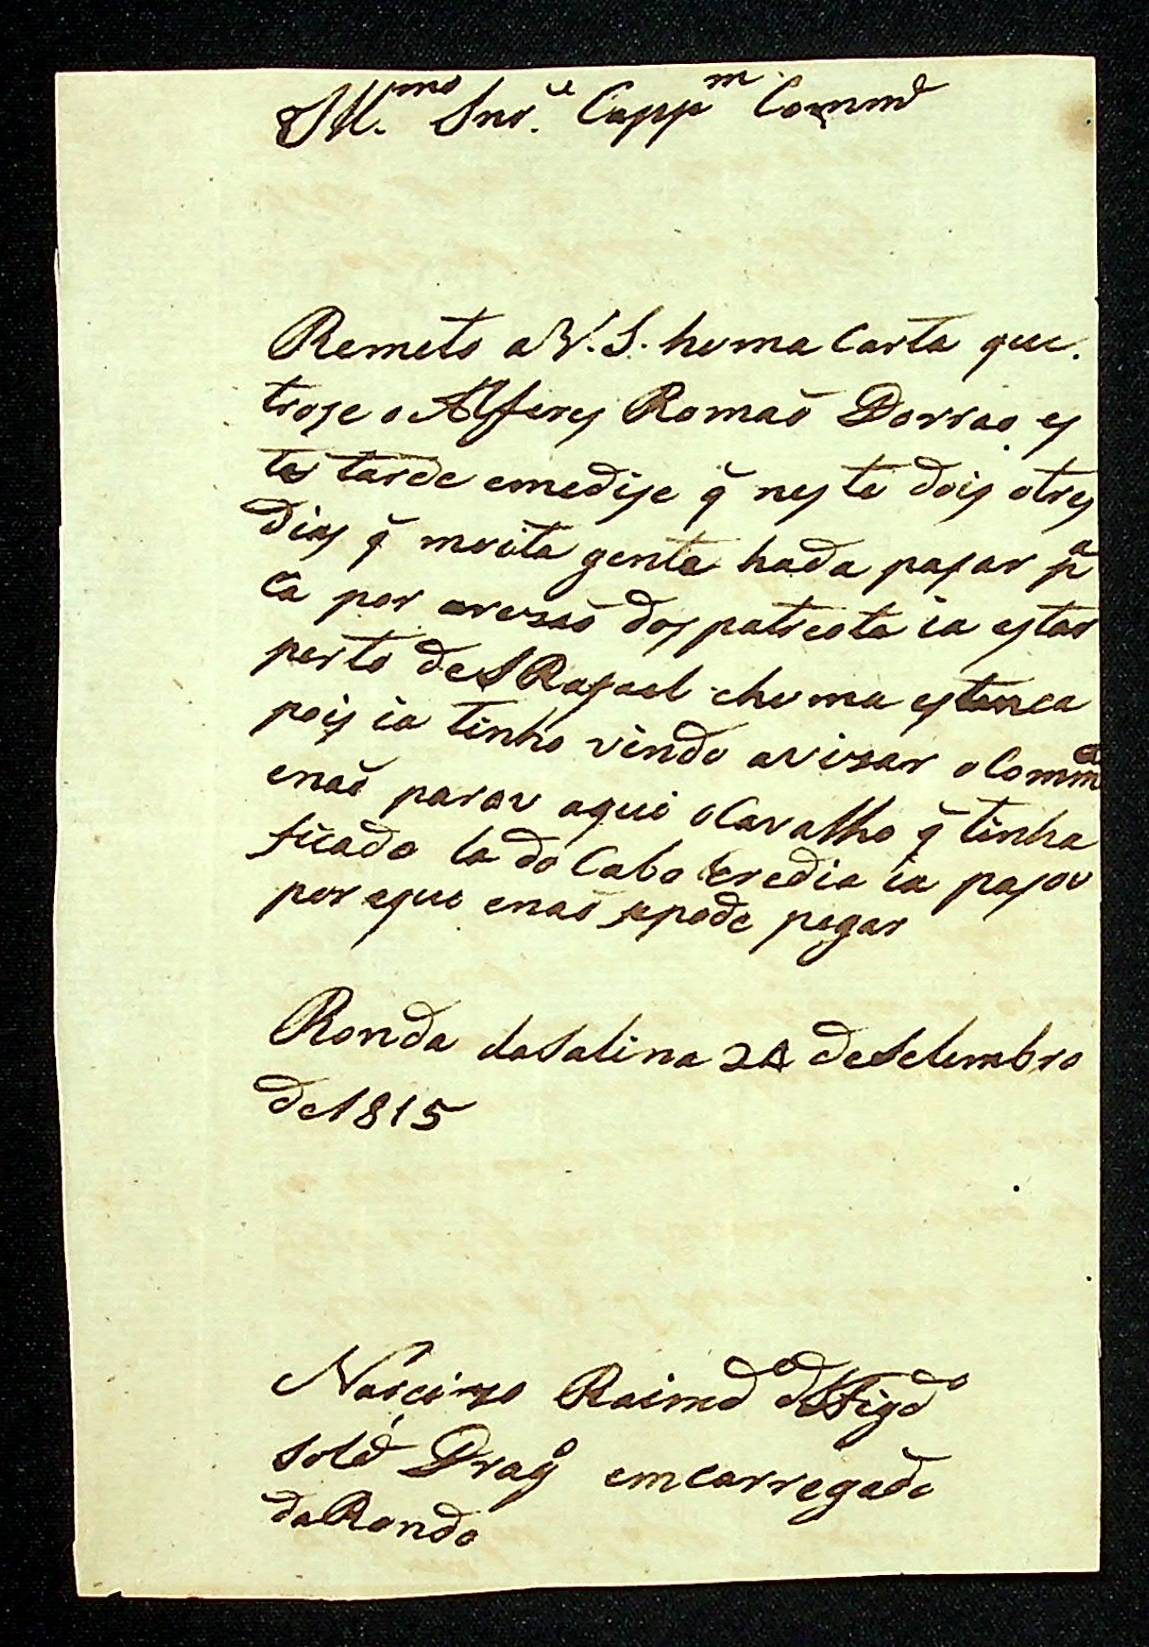 Ill.mo Snr.e Capp.m Comm.d
Remeto a V. S. huma Carta que.
trose o Alferes Romaõ Dorrao es
ta tarde emedise q̃ nes te dois otres
dias q̃ muita gente hada pasar p.a
Ca por aresaõ dos patreota ia estar
perto de S Rafael e huma estanca
pois ia tinho vindo avizar o Comm.de
enaõ parau aqui o Carvalho q̃ tinha
ficado la do Cabo Eredia ia pasou
por aque enaõ sepode pegar
Ronda daSalina 24 deSetembro
de1815
Narcizo Raimd.o d Figd.o
Sold. Drag.o emcarregado
daRonda